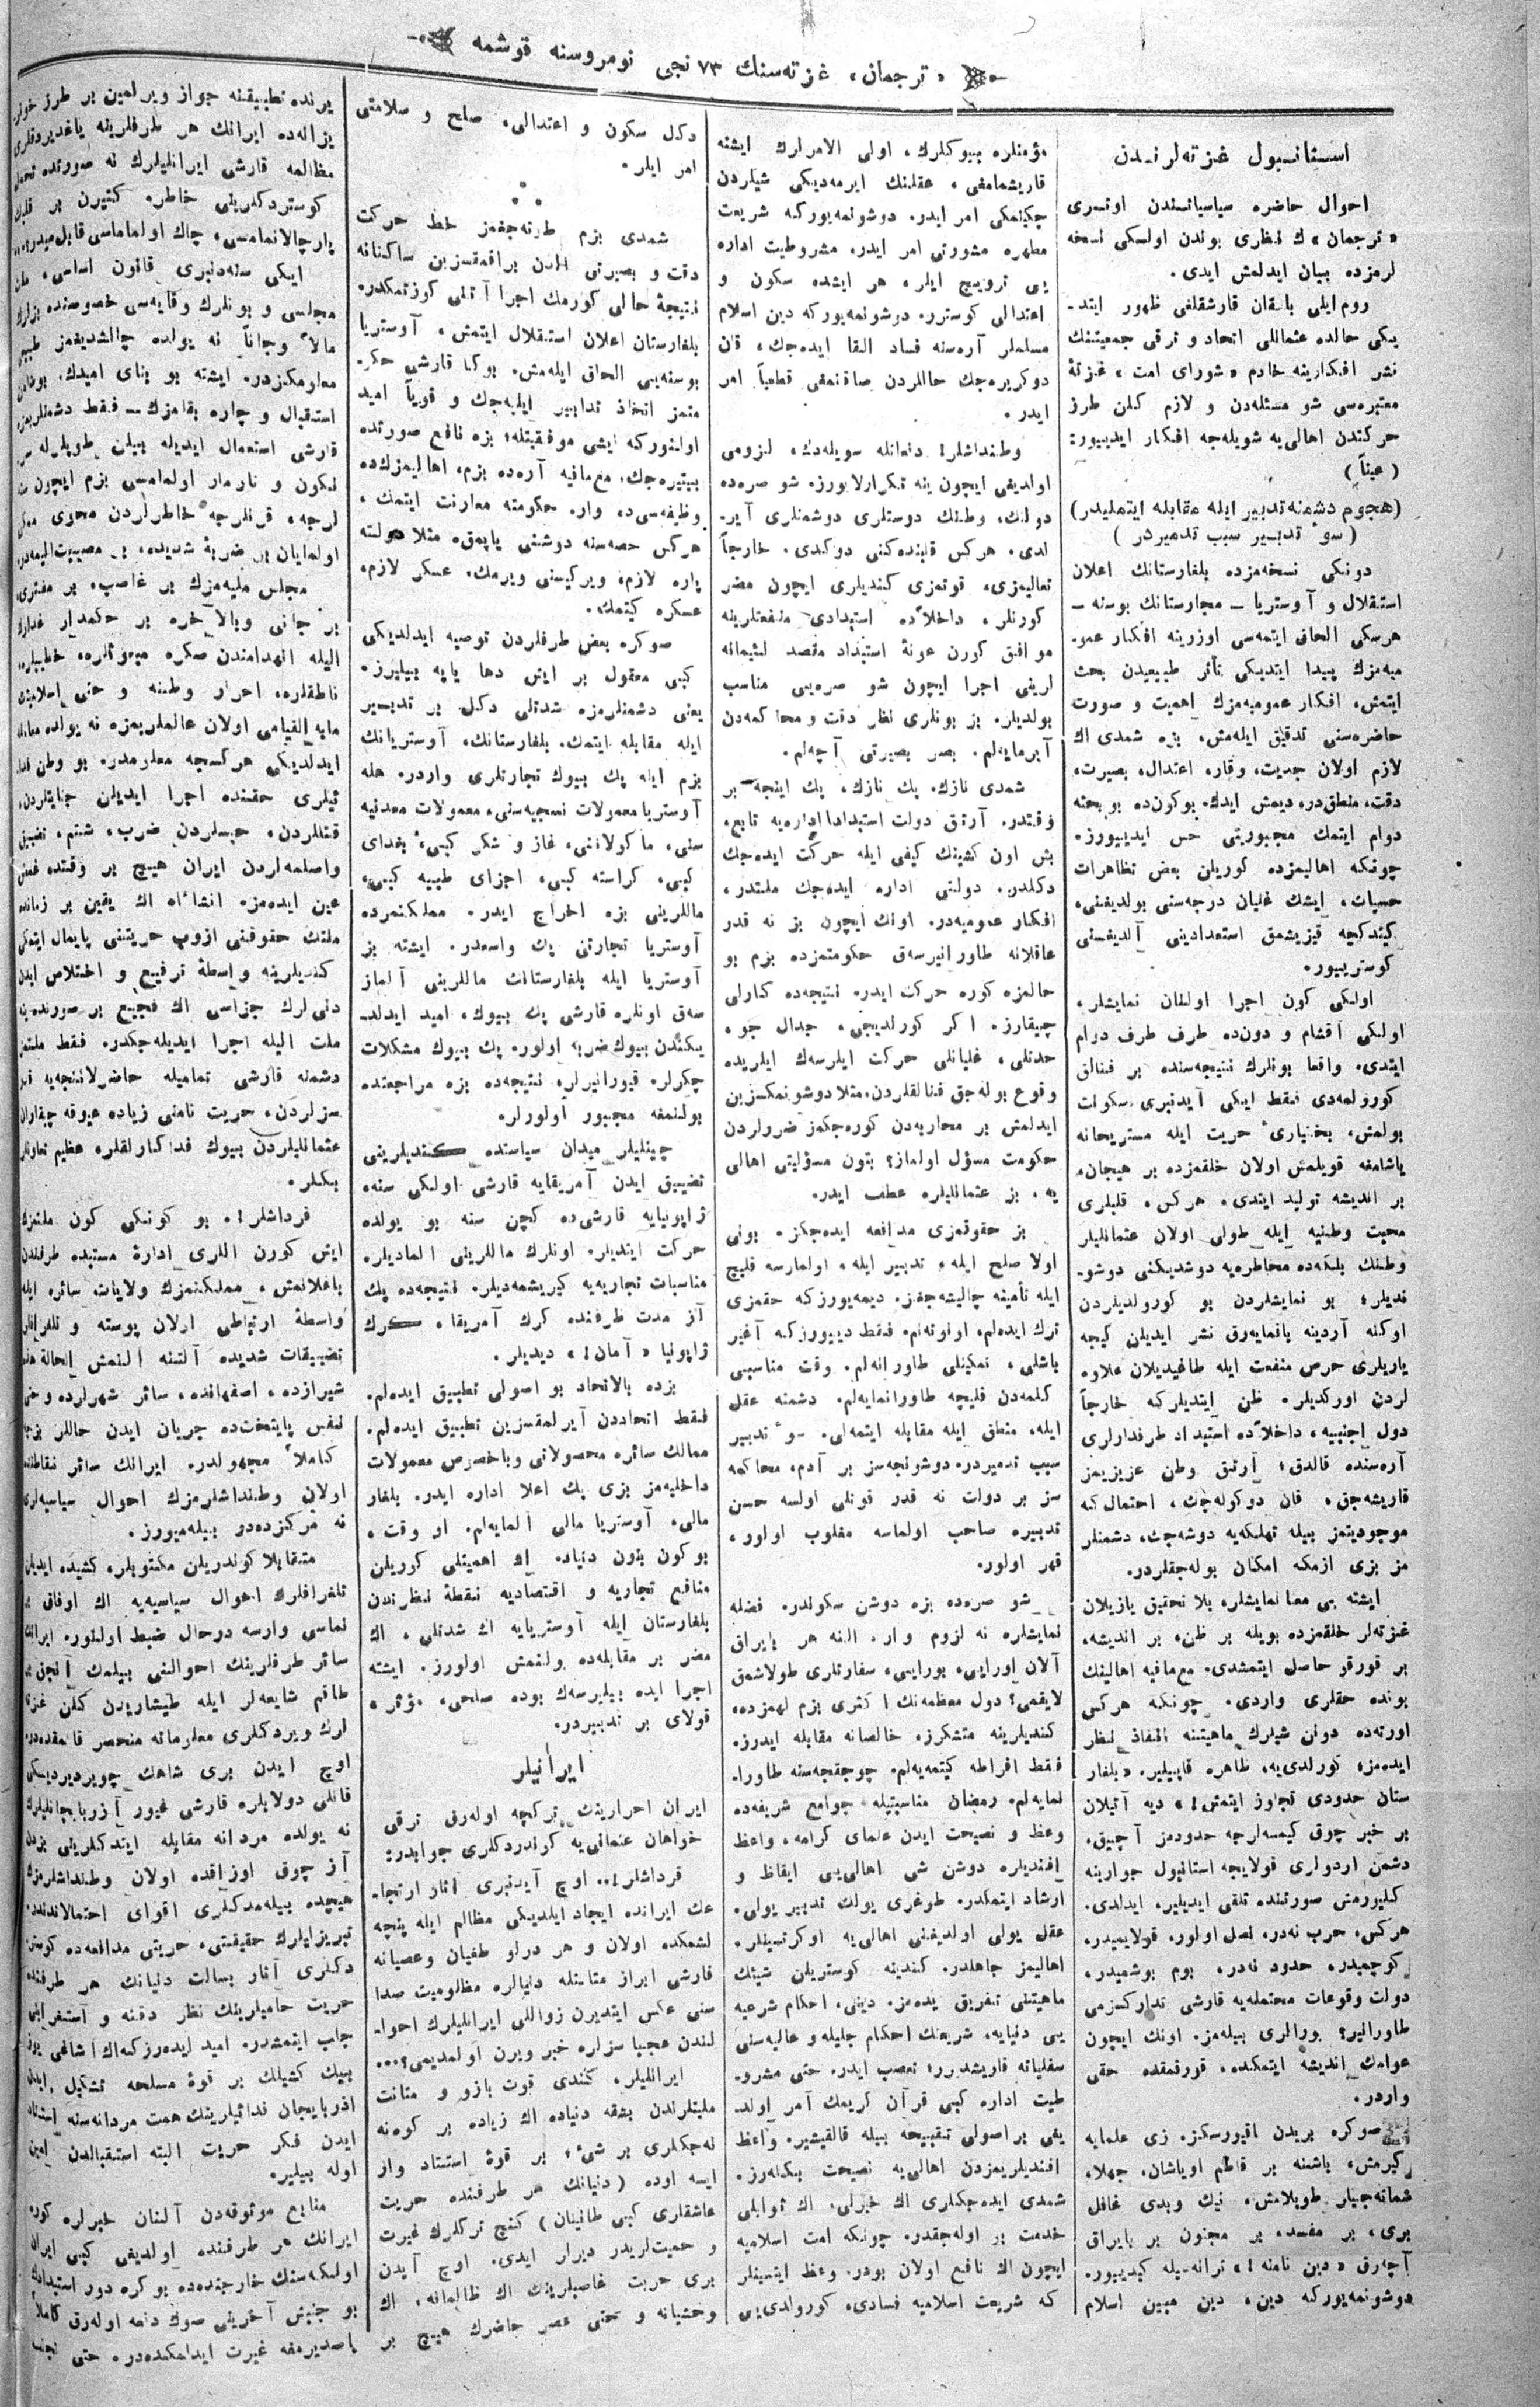 «ترجمان» غزته‌سنك ٧٣ نجی نومروسنه قوشمه
استانبول غزته‌لرندن
احوال حاضره سیاسیاتندن اوتری
«ترجمان» ك نظری بوندن اولکی نسخه
لرمزده بیان ایدلمش ایدی.
روم ایلی بالقان قارشقلغی ظهور ایتد-
یکی حالده عثمانلی اتحاد و ترقی جمعیتنك
نشر افکارینه خادم «شورای امت» غزتهٔ
معتبره‌سی شو مسئله‌دن و لازم کلن طرز
حرکتدن اهالی‌یه شویله‌جه افکار ایدییور:
(عیناً)
(هجوم دشمنه تدبیر ایله مقابله ایتملیدر)
(سوٴ تدبیر سبب تدمیردر)
دونکی نسخه‌مزده بلغارستانك اعلان
استقلال و آوستریا – مجارستانك بوسنه –
هرسکی الحاق ایتمه‌سی اوزرینه افکار عمو-
میه‌مزك پیدا ایتدیکی تأثر طبیعیدن بحث
ایتمش، افکار عمومیه‌مزك اهمیت و صورت
حاضره‌سنی تدقیق ایله‌مش، بزه شمدی اك
لازم اولان جدیت، وقار، اعتدال، بصیرت،
دقت، منطق‌در، دیمش ایدك. بوکون‌ده بو بحثه
دوام ایتمك مجبوریتی حس ایدییورز.
چونکه اهالیمزده کوریلن بعض تظاهرات
حسیات، ایشك غلیان درجه‌سنی بولدیغنی،
کیتدکجه قیزیشمق استعدادینی آلدیغنی
کوسترییور.
اولکی کون اجرا اولنان نمایشلر،
اولکی آقشام و دون‌ده طرف طرف دوام
ایتدی. واقعا بونلرك نتیجه‌سنده بر فنالق
کورولمه‌دی فقط ایکی آیدنبری سکونت
بولمش، بختیاریٔ حریت ایله مستریحانه
یاشامغه قویلمش اولان خلقمزده بر هیجان،
بر اندیشه تولید ایتدی. هرکس، قلبلری
محبت وطنیه ایله طولی اولان عثمانلیلر
وطنك بلکه‌ده مخاطره‌یه دوشدیکنی دوشو-
ندیلر؛ بو نمایشلردن بو کورولدیلردن
لردن اورکدیلر. ظن ایتدیلرکه خارجاً
دول اجنبیه، داخلاً ده استبداد طرفدارلری
آره‌سنده قالدق؛ آرتق وطن عزیزیمز
قاریشه‌جق، قان دوکوله‌جك، احتمال که
موجودیتمز بیله تهلکه‌یه دوشه‌جك، دشمنلر
مز بزی ازمکه امکان بوله‌جقلردر.
ایشته بی معنا نمایشلر، بلا تحقیق یازیلان
غزته‌لر خلقمزده بویله بر ظن، بر اندیشه،
بر قورقو حاصل ایتمشدی. مع‌مافیه اهالینك
بونده حقلری واردی. چونکه هرکس
اورته‌ده دونن شیلرك ماهیتنه انفاذ نظر
ایده‌مز؛ کورلدی‌یه، ظاهره قاپیلیر. «بلغار
ستان حدودی تجاوز ایتمش!» دیه آتیلان
بر خبر چوق کیمسه‌لرجه حدودمز آچیق،
دشمن اردولری قولایجه استانبول جوارینه
کلیورمش صورتنده تلقی ایدیلیر، ایدلدی.
هرکس، حرب نه‌در، نصل اولور، قولایمیدر،
کوچمیدر، حدود نه‌در، بوم بوشمیدر،
دولت وقوعات محتمله‌یه قارشی تدارکسزمی
طاورانیر؟ بورالری بیله‌مز. اونك ایچون
عوامك اندیشه ایتمکده، قورقمقده حقی
واردر.
صوکره بریدن باقیورسکز. زی علمایه
کیرمش، باشنه بر قاطم اوباشان، جهلا،
بری، بر مفسد، بر مجنون بر بایراق
آچه‌رق «دین نامنه!» ترانه‌سیله کیدییور.
دوشونمه‌یورکه دین، دین مبین اسلام
مؤمنلره بیوکلرك، اولی الامرلرك ایشنه
قاریشمامغی، عقلنك ایرمه‌دیکی شیلردن
چکینمکی امر ایدر. دوشونمه‌یورکه شریعت
مطهره مشورتی امر ایدر، مشروطیت اداره
یی ترویج ایلر، هر ایشده سکون و
اعتدالی کوسترر. دوشونمه‌یورکه دین اسلام
مسلملر آره‌سنه فساد القا ایده‌جك، قان
دوکدیره‌جك حاللردن صاقنمغی قطعیاً امر
ایدر.
وطنداشلر! دفعاتله سویله‌دك، لزومی
اولدیغی ایچون ینه تکرارلایورز. شو صره‌ده
دولتك، وطنك دوستلری دوشمنلری آیر-
لدی. هرکس قلبنده‌کنی دوکدی. خارجاً
تعالیمزی، قوتمزی کندیلری ایچون مضر
کورنلر، داخلاً ده استبدادی منفعتلرینه
موافق کورن عونهٔ استبداد مقصد لئیمانه
لرینی اجرا ایچون شو صره‌یی مناسب
بولدیلر. بز بونلری نظر دقت و محاکمه‌دن
آیرمایه‌لم. بصر بصیرتی آچه‌لم.
شمدی نازك، پك نازك، پك اینجه بر
وقتدر. آرتق دولت استبداداً اداره‌یه تابع،
بش اون کشینك کیفی ایله حرکت ایده‌جك
دکلدر. دولتی اداره ایده‌جك ملتدر،
افکار عمومیه‌در. اونك ایچون بز نه قدر
عاقلانه طاورانیرسه‌ق حکومتمزده بزم بو
حالمزه کوره حرکت ایدر، نتیجه‌ده کارلی
چیقارز. اکر کورلدیجی، جدال جو،
حدتلی، غلیانلی حرکت ایلرسه‌ك ایلریده
وقوع بوله‌جق فنالقلردن، مثلا دوشونمکسزین
ایدلمش بر محاربه‌دن کوره‌جکمز ضررلردن
حکومت مسؤل اولماز؟ بتون مسؤلیتی اهالی
یه، بز عثمانلیلره عطف ایدر.
بز حقوقمزی مدافعه ایده‌جکز. بونی
اولا صلح ایله، تدبیر ایله، اولمازسه قلیچ
ایله تأمینه چالیشه‌جغز. دیمه‌یورزکه حقمزی
ترك ایده‌لم، اونوته‌لم. فقط دییورزکه آغیر
باشلی، تمکینلی طاورانه‌لم. وقت مناسبی
کلمه‌دن قلیچه طاورانمایه‌لم. دشمنه عقل
ایله، منطق ایله مقابله ایتمه‌لی. سوٴ تدبیر
سبب تدمیردر. دوشونجه‌سز بر آدم، محاکمه
سز بر دولت نه قدر قوتلی اولسه حسن
تدبیره صاحب اولماسه مغلوب اولور،
قهر اولور.
شو صره‌ده بزه دوشن سکوتدر. فضله
نمایشلره نه لزوم وار. الینه هر بایراق
آلان اورایی، بورایی، سفارتلری طولاشمق
لایقمی؟ دول معظمه‌نك اکثری بزم لهمزده،
کندیلرینه متشکرز. خالصانه مقابله ایدرز.
فقط افراطه کیتمه‌یه‌لم. چوجقجه‌سنه طاورا-
نمایه‌لم. رمضان مناسبتیله جوامع شریفه‌ده
وعظ و نصیحت ایدن علمای کرامه، واعظ
افندیلره دوشن شی اهالی‌یی ایقاظ و
ارشاد ایتمکدر. طوغری یولك تدبیر یولی،
عقل یولی اولدیغنی اهالی‌یه اوکرتسینلر.
اهالیمز جاهلدر. کندینه کوستریلن شیئك
ماهیتنی تفریق ایده‌مز. دینی، احکام شرعیه
یی دنیایه، شریعتك احکام جلیله و عالیه‌سنی
سفلیاته قاریشدیرر؛ تعصب ایدر. حتی مشرو-
طیت اداره کبی قرآن کریمك آمر اولد-
یغی بر اصولی تقبیحه بیله قالقیشیر. واعظ
افندیلریمزدن اهالی‌یه نصیحت بکلرز.
شمدی ایده‌جکلری اك خیرلی، اك ثوابلی
خدمت بو اوله‌جقدر. چونکه امت اسلامیه
ایچون اك نافع اولان بودر. وعظ ایتسینلر
که شریعت اسلامیه فسادی، کورولدی‌یی
دکل سکون و اعتدالی، صلح و سلامتی
امر ایلر.
شمدی بزم طوته‌جغمز خط حرکت
دقت و بصیرتی الدن براقمقسزین ساکنانه
نتیجهٔ حالی کورمك اجراآتنی کوزتمکدر.
بلغارستان اعلان استقلال ایتمش، آوستریا
بوسنه‌یی الحاق ایله‌مش. بوکا قارشی حکو-
متمز اتخاذ تدابیر ایلیه‌جك و قویاً امید
اولنورکه ایشی موفقیتله؛ بزه نافع صورتده
بیتیره‌جك. مع‌مافیه آره‌ده بزم، اهالیمزك‌ده
وظیفه‌سی‌ده وار. حکومته معاونت ایتمك،
هرکس حصه‌سنه دوشنی یاپمق. مثلا دولته
پاره لازم، ویرکیسنی ویرمك. عسکر لازم،
عسکره کیتمك.
صوکره بعض طرفلردن توصیه ایدلدیکی
کبی معقول بر ایش دها یاپه بیلیرز.
یعنی دشمنلرمزه شدتلی دکل بر تدبیر
ایله مقابله ایتمك. بلغارستانك، آوستریانك
بزم ایله پك بیوك تجارتلری واردر. هله
آوستریا معمولات نسجیه‌سنی، معمولات معدنیه
سنی، ماکولاتنی، غاز و شکر کبی، بغدای
کبی، کراسته کبی، اجزای طبیه کبی،
ماللرینی بزه اخراج ایدر. مملکتمزده
آوستریا تجارتی پك واسعدر. ایشته بز
آوستریا ایله بلغارستانك ماللرینی آلماز
سه‌ق اونلره قارشی پك بیوك، امید ایدلد-
یکندن بیوك ضربه اولور، پك بیوك مشکلات
چکرلر. قیورانیرلر، نتیجه‌ده بزه مراجعتده
بولنمغه مجبور اولورلر.
چینلیلر میدان سیاستده کندیلرینی
تضییق ایدن آمریقایه قارشی اولکی سنه،
ژاپونیایه قارشی‌ده کچن سنه بو یولده
حرکت ایتدیلر. اونلرك ماللرینی المادیلر.
مناسبات تجاریه‌یه کیریشمه‌دیلر. نتیجه‌ده پك
آز مدت ظرفنده کرك آمریقا، کرك
ژاپونیا «آمان!» دیدیلر.
بزده بالاتحاد بو اصولی تطبیق ایده‌لم.
فقط اتحاددن آیرلمقسزین تطبیق ایده‌لم.
ممالك سائره محصولاتی وباخصوص معمولات
داخلیه‌مز بزی پك اعلا اداره ایدر. بلغار
مالی، آوستریا مالی المایه‌لم. او وقت،
بوکون بتون دنیاده اك اهمیتلی کوریلن
منافع تجاریه و اقتصادیه نقطهٔ نظرندن
بلغارستان ایله آوستریایه اك شدتلی، اك
مضر بر مقابله‌ده بولنمش اولورز. ایشته
اجرا ایده بیلیرسه‌ك بوده صلحی، مؤثر،
قولای بر تدبیردر.
ایرانیلر
ایران احرارینك ترکچه اوله‌رق ترقی
خواهان عثمانی‌یه کوندردکلری جوابدر:
قرداشلر!.. اوچ آیدنبری آثار ارتجا-
عك ایرانده ایجاد ایلدیکی مظالم ایله پنچه
لشمکده اولان و هر درلو طغیان وعصیانه
قارشی ابراز متانتله دنیالره مظلومیت صدا
سنی عکس ایتدیرن زواللی ایرانلیلرك احوا-
لندن عجبا سزلره خبر ویرن اولمدیمی؟....
ایرانلیلر، کندی قوت بازو و متانت
ملیتلرندن بشقه دنیاده اك زیاده بر کوه‌نه
نه‌جکلری بر شیٔ؛ بر قوهٔ استناد وار
ایسه اوده (دنیانك هر طرفنده حریت
عاشقلری کبی طانینان) کنج ترکلرك غیرت
و حمیت‌لریدر دیرلر ایدی. اوچ آیدن
بری حریت غاصبلرینك اك ظالمانه، اك
وحشیانه و حتی عصر حاضرك هیچ بر
یرنده تطبیقنه جواز ویرلمین بر طرز
یزالده‌ ایرانك هر طرفلرینه یاغدیردقلری
مظالمه قارشی ایرانلیلرك نه صورتده
کوستردکلرینی خاطره کتیرن بر قلبك
پارچالانمامسی، چاك اولماماسی قابل‌میدر؟..
ایکی سنه‌دنبری قانون اساسی،
مجلسی و بونلرك وقایه‌سی خصوصنده بزلرك
مالاً وجاناً نه یولده چالشدیغمز
معلومکزدر. ایشته بو بنای امیدك،
استقبال و چاره بقامزك – فقط دشمنلریمزه
قارشی استعمال ایدیله بیلن طوپلر ایله
نکون و تارمار اولمامسی بزم ایچون
لرجه، قرنلرجه خاطرلردن محوی ممکن
اولمایان بر ضربهٔ شدیده، بر مصیبت‌الیمه‌در.
مجلس ملیه‌مزك بر غاصب، بر مفتری،
بر جانی وبالآخره بر حکمدار غدارك
الیله انهدامندن صکره مبعوثلره، خطیبلره،
ناطقلره، احرار وطنه و حتی اسلامیتك
مابه القیامی اولان عالملریمزه نه یولده معامله
ایدلدیکی هرکسجه معلومدر. بو وطن فدا-
ئیلری حقنده اجرا ایدیلن جنایتلردن،
قتللردن، حبسلردن ضرب، شتم، تضییق
واصلمه‌لردن ایران هیچ بر وقتده غض
عین ایده‌مز. انشاءالله اك یقین بر زمانده
ملتك حقوقنی ازوب حریتنی پایمال ایتمکی
کندیلرینه واسطهٔ ترفیع و اختلاس ایدن
دنی‌لرك جزاسی اك فجیع بر صورتده
ملت الیله اجرا ایدیله‌جکدر. فقط ملتمز
دشمنه قارشی تمامیله حاضرلاننجه‌یه قدر
سزلردن، حریت نامنی زیاده عیوقه چیقاران
عثمانلیلردن بیوك فداکارلقلره عظیم تعاونلر
بکلر.
قرداشلر!. بو کونکی کون ملتمزك
ایش کورن اللری ادارهٔ مستبده طرفندن
باغلانمش، مملکتمزك ولایات سائره ایله
واسطهٔ ارتباطی اولان پوسته و تلغرافلر
تضییقات شدیده آلتنه النمش
شیرازده، اصفهانده، سائر شهرلرده وحتی
نفس پایتخت‌ده جریان ایدن حاللر بزجه
کاملاً مجهولدر. ایرانك سائر نقاطنده
اولان وطنداشلرمزك احوال سیاسیه‌لری
نه مرکزده‌در بیله‌میورز.
متقابلا کوندریلن مکتوبلر، کشیده ایدیلن
تلغرافلرك احوال سیاسیه‌یه اك اوفاق بر
تماسی وارسه درحال ضبط اولنور. ایرانك
سائر طرفلرینك احوالنی بیلمك آنجق بر
طاقم شایعه‌لر ایله طیشاریدن کلن غزته
لرك ویردکلری معلوماته منحصر قالمقده‌در.
اوچ ایدن بری شاهك چویردیکی
قانلی دولابلره قارشی غیور آذربایجانلیلرك
نه یولده مردانه مقابله ایتدکلرینی بزدن
آز چوق اوزاقده اولان وطنداشلرمزك
هیچده بیله‌مدکلری اقوای احتمالاتدندر.
تبریزلیلرك حقیقتی، حریتی مدافعه‌ده کوستر-
دکلری آثار بسالت دنیانك هر طرفنده
حریت حامیلرینك نظر دقته و استغرابنی
جلب ایتمشدر. امید ایده‌رزکه اك اشاغی یوز
بیك کشیلك بر قوهٔ مسلحه تشکیل ایدن
اذربایجان فدائیلرینك همت مردانه‌سنه استناد
ایدن فکر حریت البته استقبالدن امین
اوله بیلیر.
منابع موثوقه‌دن آلنان خبرلره کوره
ایرانك هر طرفنده اولدیغی کبی ایران
اولکه‌سنك خارجنده‌ده بو کره دور استبدادك
بو جنبش آخرینی صوك دفعه اوله‌رق کاملاً
باصدیرمغه غیرت ایدلمکده‌در. حتی